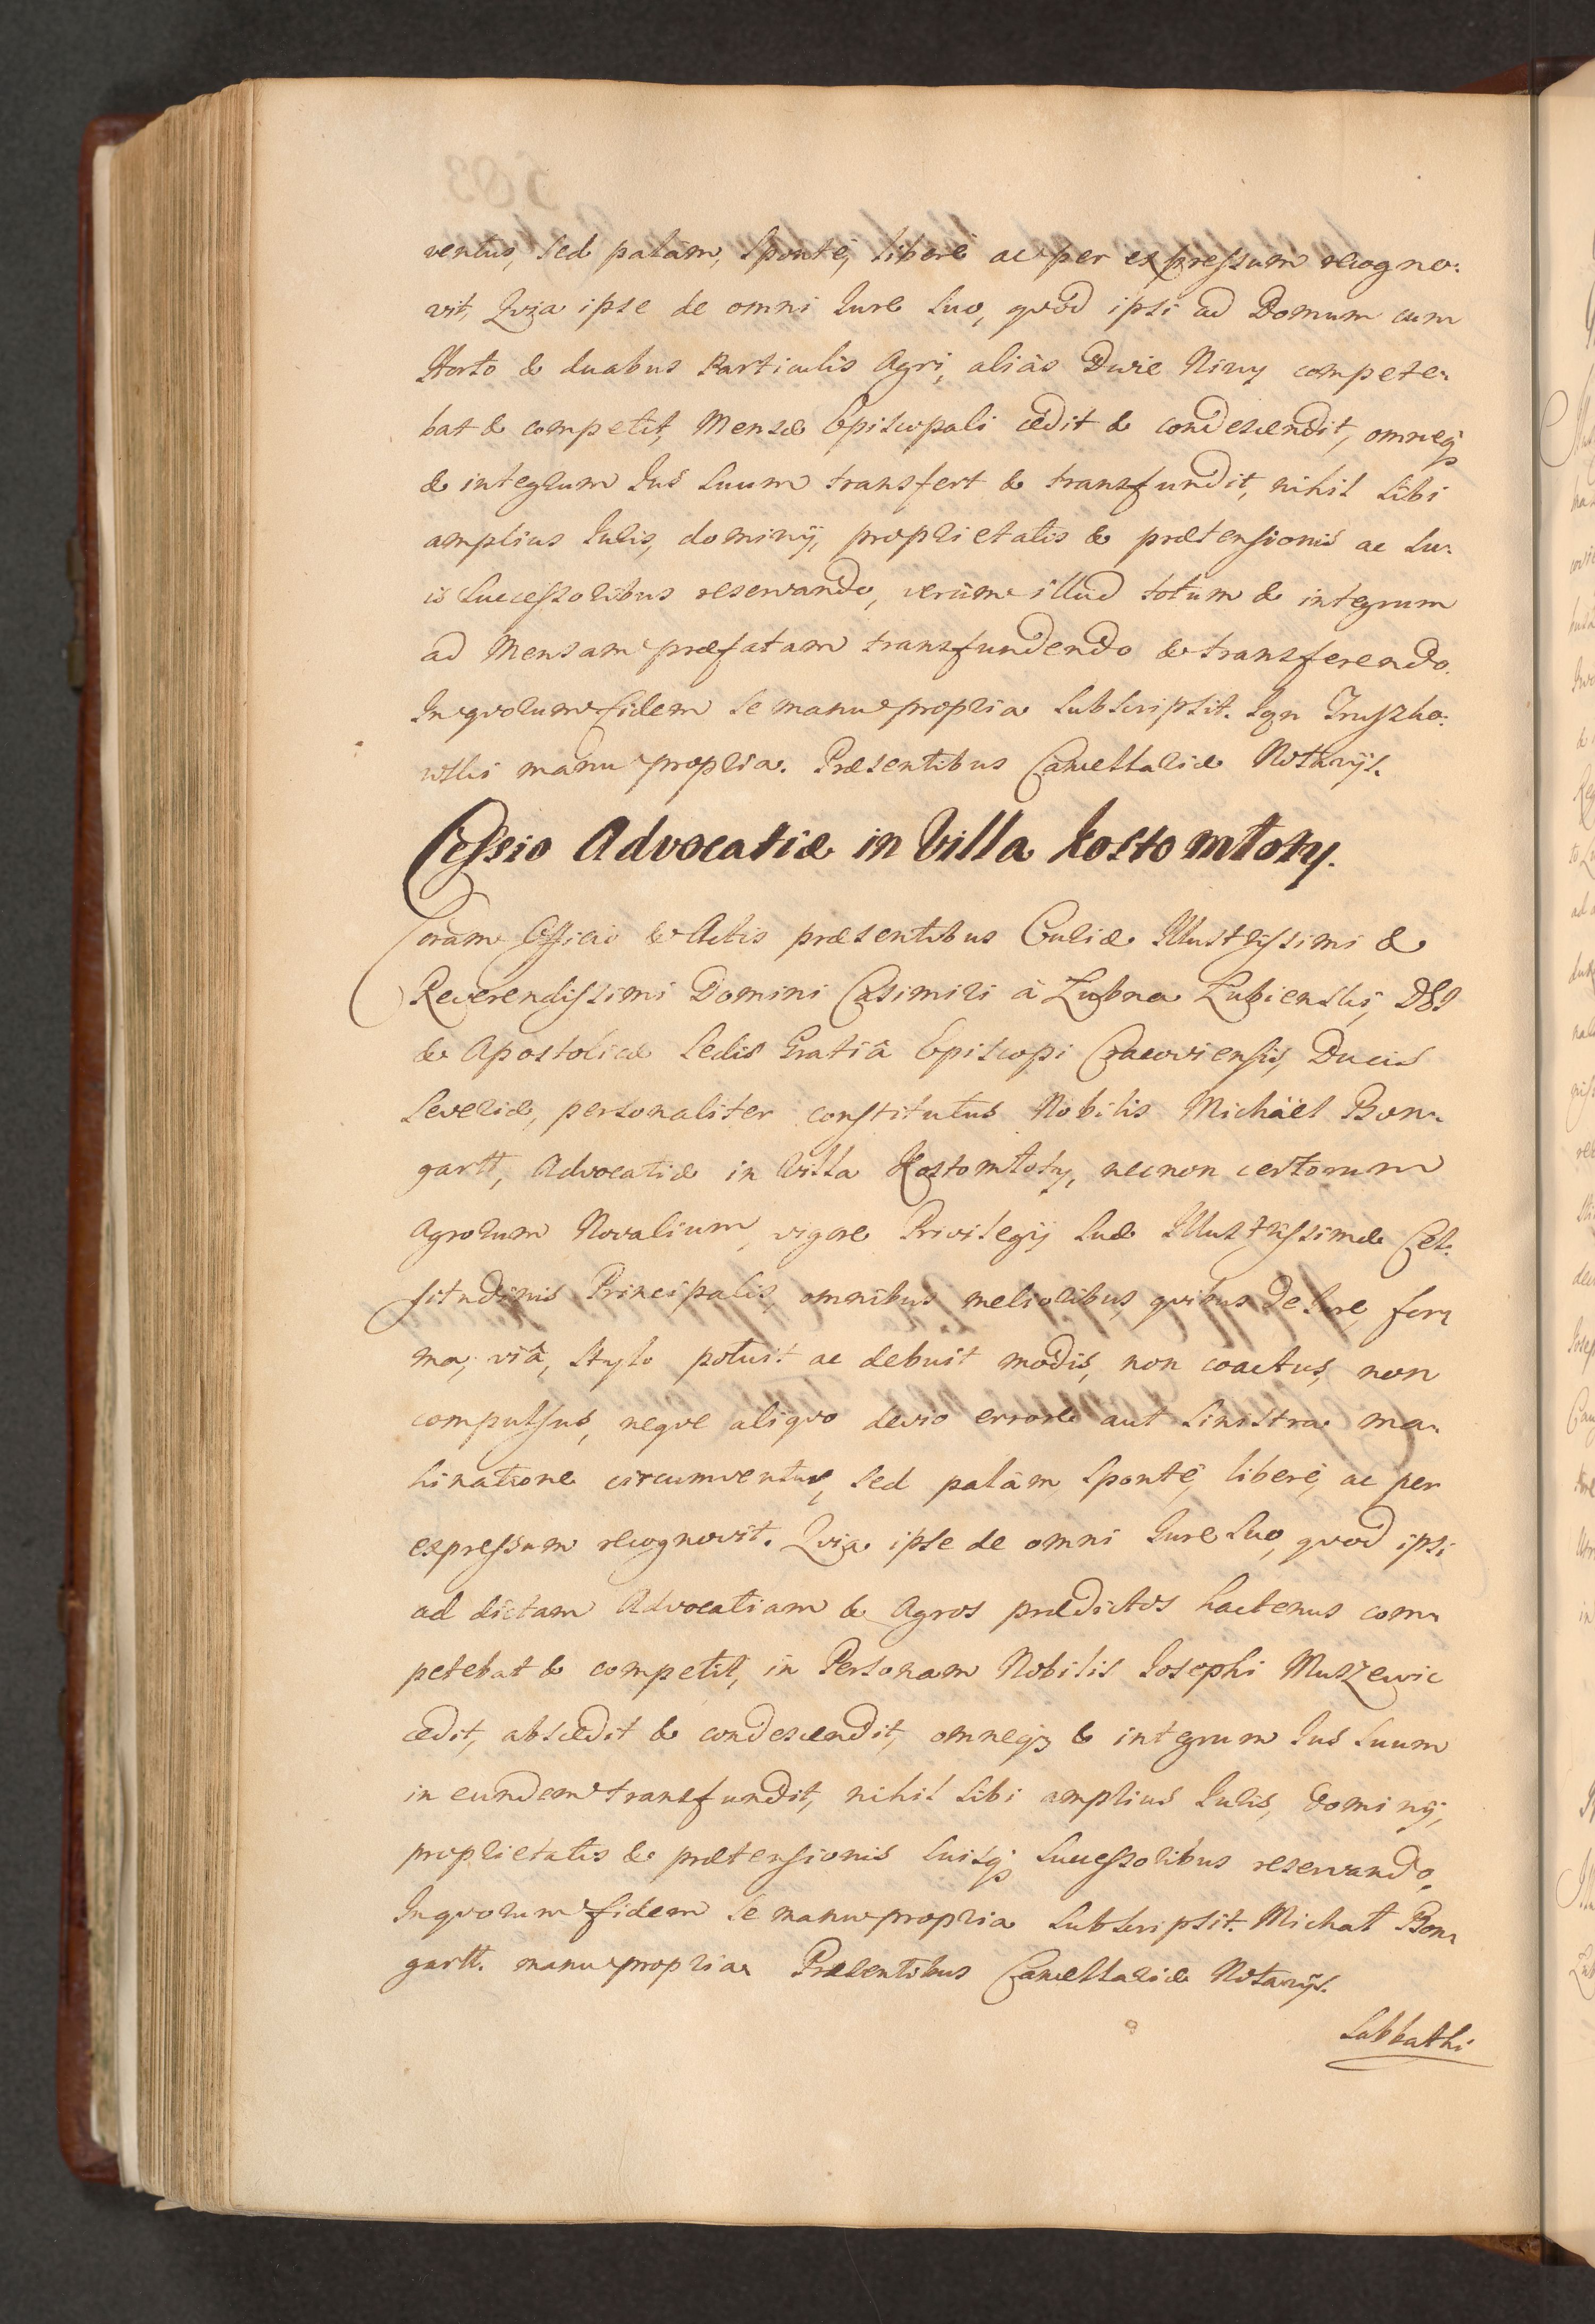 ventus, sed palàm, spontè, liberè ac per expressum recogno:
vit, Quia ipse de omni Jure suo, quòd ipsi ad Domum cum
Horto & duabus Particulis Agri, aliàs Dwie Niwy compete:
bat & competit, Mensæ Episcopali cedit & condescendit, omneq;
& integrum Jus suum transfert & transfundit, nihil sibi
amplius Juris, dominij, proprietatis & prætensionis ac su:
is Successoribus reservando, verùm illud totum & integrum
ad Mensam præfatam transfundendo & transferendo.
In quorum fidem se manu propria subscripsit. Ign Truszko:
wski manu propria. Præsentibus Cancellariæ Notarijs.
Cessio Advocatiæ in Villa Kostomłoty.
Coram Officio & Actis præsentibus Curiæ Illustrissimi &
Reverendissimi Domini Casimiri à Łubna Łubienski, DEI
& Apostolicæ Sedis Gratiâ Episcopi Cracoviensis, Ducis
Severiæ, personaliter constitutus Nobilis Michäel Bon:
gartt, Advocatiæ in Villa Kostomłoty, necnon certorum
Agrorum Novalium, vigore Privilegij Suæ Illustrissimæ Cel:
situdinis Principalis, omnibus melioribus, quibus de Jure, for:
ma, viâ, stylo potuit ac debuit modis, non coactus, non
compulsus, neque aliquo devio errore aut sinistra ma:
hinatione circumventus, sed palàm, spontè, liberè, ac per
expressum recognovit. Quia ipse de omni Jure suo, quod ipsi
ad dictam Advocatiam & Agros prædictos hactenus com:
petebat & competit, in Personam Nobilis Josephi Muszewic
cedit, abscedit & condescendit, omneq; & integrum Jus suum
in eundem transfundit, nihil sibi amplius Juris, dominij,
proprietatis & prætensionis suisq; Successoribus reservando,
In quorum fidem se manu propria subscripsit. Michał Bon:
gartt. manu propria Præsentibus Cancellariæ Notarijs.
Sabbathi